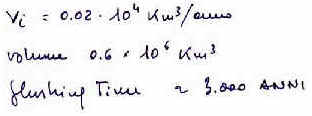 Vi = 0.02 · 10⁴ Km³/anno
volume 0.6 × 10⁶ Km³
flushing Time ≈ 3.000 ANNI